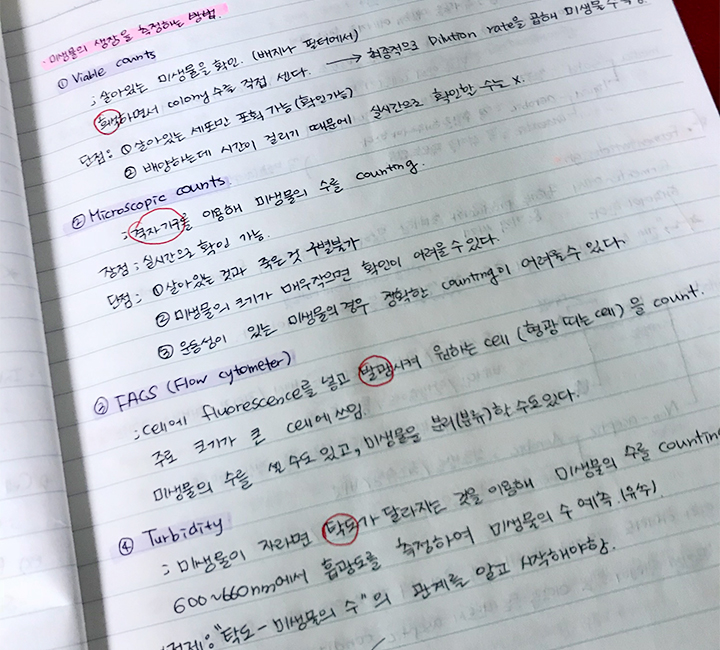 · 미생물의 생장을 측정하는 방법.
① Viable counts
; 살아있는 미생물을 확인. (배지나 필터에서)
희석하면서 colony 수를 직접 센다. → 최종적으로 Dilution rate을 곱해 미생물 수
단점 : ① 살아있는 세포만 포획 가능 (확인가능)
② 배양하는데 시간이 걸리기 때문에 실시간으로 확인할 수는 x.
② Microscopic counts
; 격자기구를 이용해 미생물의 수를 counting.
장점 : 실시간으로 확인 가능.
단점 : ① 살아있는 것과 죽은것 구별불가
② 미생물의 크기가 매우작으면 확인이 어려울수 있다.
③ 운동성이 있는 미생물의 경우 정확한 counting이 어려울수 있다.
③ FACS (Flow cytometer)
; cell에 fluorescence를 넣고 발광시켜 원하는 cell (형광 띠는 cell) 을 count.
주로 크기가 큰 cell에 쓰임.
미생물의 수를 셀 수도 있고, 미생물을 분리(분류)할 수도있다.
④ Turbidity
; 미생물이 자라면 탁도가 달라지는 것을 이용해 미생물의 수를 counting
600~660nm에서 흡광도를 측정하여 미생물의 수 예측. (유추).
전제 : "탁도 - 미생물의 수"의 관계를 알고 시작해야함.